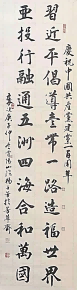 慶祝中國共產黨建黨一百周年
習近平倡導一帶一路造福世界
亞投行融通五洲四海合和萬國